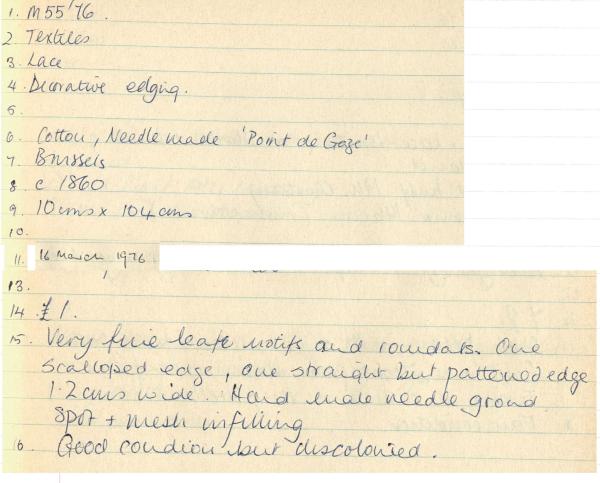 1. M55'76.
2 Textiles
3. Lace
4. Decorative edging.
5.
6. Cotton, Needle made 'Point de Gaze'
7. Brussels
8. c 1860
9. 10cms x 104cms
10.
11. 16 March 1976
13.
14 £1.
15. Very fine leafe motifs and roundals. One
scalloped edge, one straight but patterned edge
1.2cms wide. Hand made needle ground
Spot + mesh infilling
16. Good condion but discoloured.